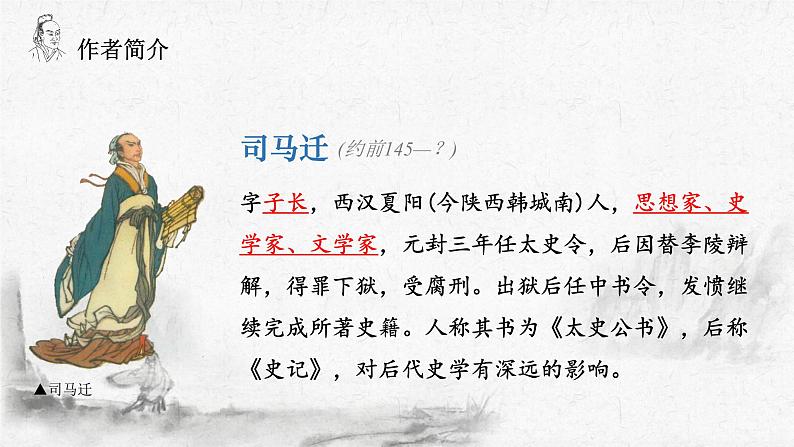 作者简介
司马迁 (约前145—?)
字子长，西汉夏阳(今陕西韩城南)人，思想家、史
学家、文学家，元封三年任太史令，后因替李陵辩
解，得罪下狱，受腐刑。出狱后任中书令，发愤继
续完成所著史籍。人称其书为《太史公书》，后称
《史记》，对后代史学有深远的影响。
▲司马迁